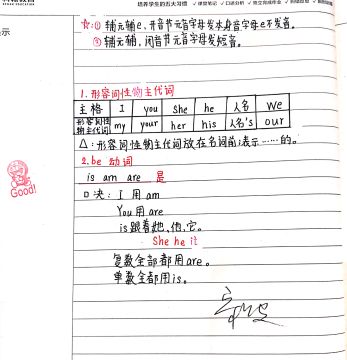 培养学生的五大习惯
☆:① 辅元辅e、开音节元音字母发本身音字母e不发音。
② 辅元辅,闭音节元音字母发短音。
1.形容词性物主代词
主格 I you She he 人名 We
形容词性物主代词 my your her his 人名's our
△:形容词性物主代词放在名词前;表示……的。
2.be 动词
is am are 是
口决: I 用 am
You 用 are
is 跟着她,他,它。
She he it
复数全部都用are。
单数全都用is。
Good!